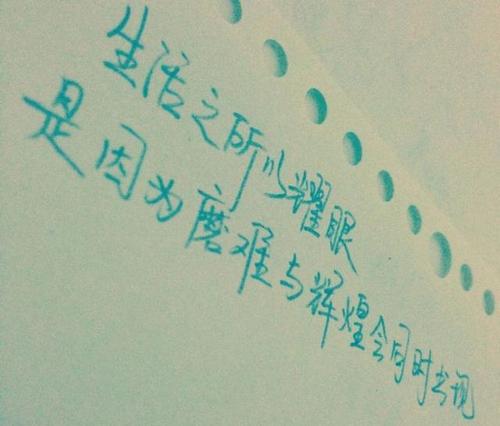 生活之所以耀眼
是因为磨难与辉煌会同时出现